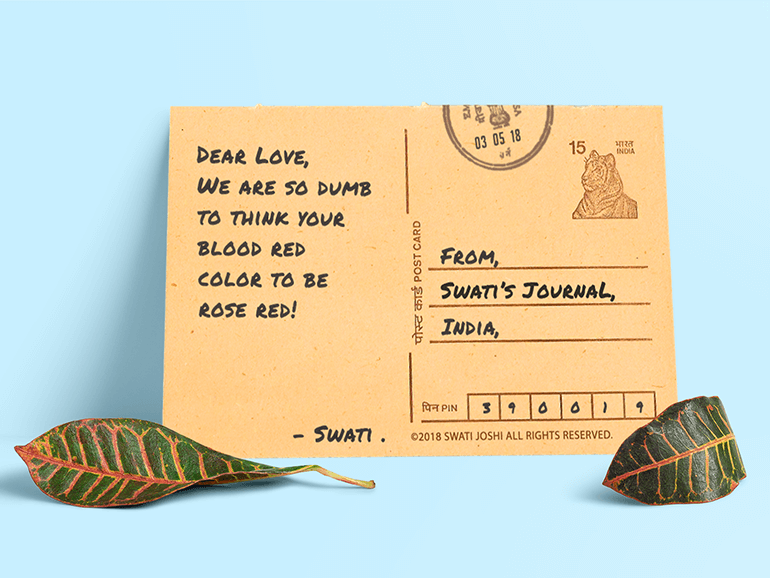 DEAR LOVE,
WE ARE SO DUMB
TO THINK YOUR
BLOOD RED
COLOR TO BE
ROSE RED!
- SWATI .
03 05 18
15 भारत
INDIA
पोस्ट कार्ड POST CARD
FROM,
SWATI'S JOURNAL,
INDIA,
पिन PIN 3 9 0 0 1 9
©2018 SWATI JOSHI ALL RIGHTS RESERVED.